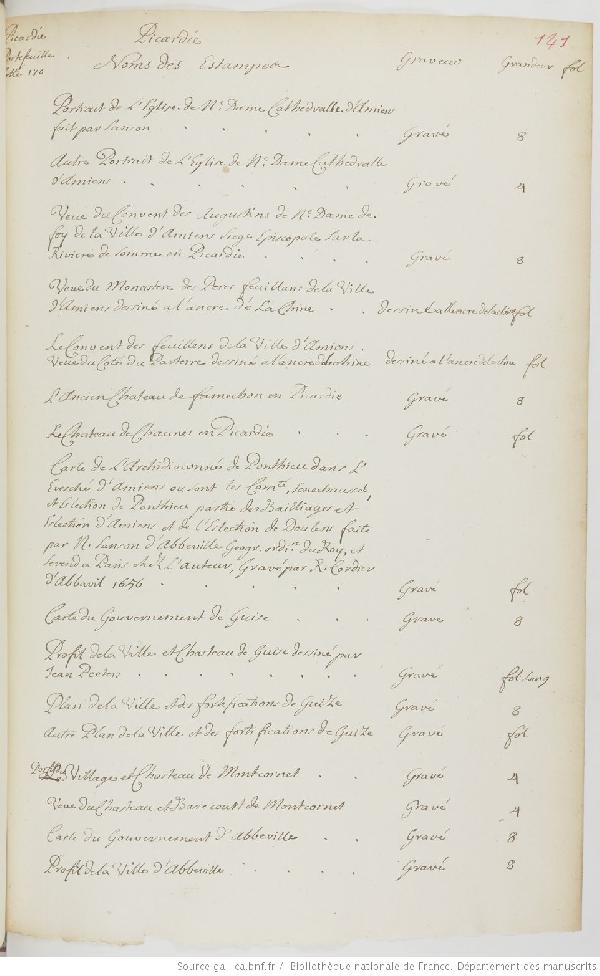 Picardie
Portefeuille
Picardie
141
Noms des Estampes
Graveur Grandeur fol
Portrait de L'Eglise de N.e Dame Cathédralle d'Amiens
fait par Sanson . . . . Gravé 8
Autre Portrait de L'Eglise de N.e Dame Cathedralle
d'Amiens . . . . . Gravé 4
Veue du Convent des Augustins de N.e Dame de
foy de la Ville d'Amiens Siege Episcopale Sur la
Riviere de Somme en Picardie . . . Gravé 8
Veue du Monastere des Peres feuillans de la Ville
d'Amiens dessiné a l'ancre de La Chine . . dessiné a l'ancre de la chine fol
Le Convent des feuillens de la Ville d'Amiens.
Veue du Coté du Parterre dessiné a l'encre de la chine dessiné a l'ancre de la chine fol
L'Ancien Chateau de famechon en Picardie Gravé 8
Le Chateau de Chaunes en Picardie . . . Gravé fol
Carte de L'Archidiaconné de Ponthieu dans L'
Evesché d'Amiens ou sont les Comté, Senechaussée,
et Eslection de Ponthieu partie des Bailliages et
Eslection d'Amiens et de l'Eslection de Doulens faite
par N. Sanson d'Abbeville Geogr. ordi.re du Roy, et
se vend a Paris chez L'Auteur, Gravé par R. Cordier
d'Abbevil 1656 . . . . . Gravé fol
Carte du Gouvernement de Guise . . Gravé 8
Profil de la Ville et Chasteau de Guise dessiné par
Jean Peeters . . . . . . . Gravé fol long
Plan de la Ville et des fortifications de Guize Gravé 8
Autre Plan de la Ville et des fortifications de Guize Gravé fol
Village et Chasteau de Montcornet . . Gravé 4
Veue du Chasteau et Basse court de Montcornet Gravé 4
Carte du Gouvernement d'Abbeville . . Gravé 8
Profil de la Ville d'Abbeville . . . . Gravé 8
Source gallica.bnf.fr / Bibliothèque nationale de France. Département des manuscrits